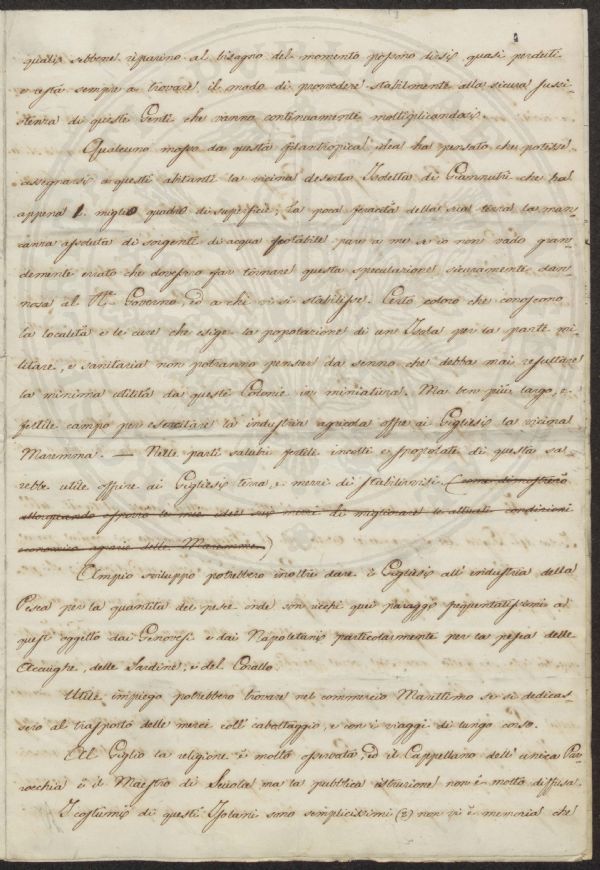 quali sebbene riparino al bisogno del momento possono dirsi quasi perduti
e resta sempre a trovare il modo di provvedere stabilmente alla sicura sussi-
stenza di queste Genti che vanno continuamente moltiplicandosi.
Qualcuno mosso da questa filantropica idea ha pensato che potesse
assegnarsi a questi abitanti la vicina deserta Isoletta di Giannutri che ha
appena 1. miglio quadro di superficie; La poca feracità della sua terra la man-
canza assoluta di sorgenti di acqua potabile pare a me se io non vado gran-
demente errato che dovessero far tornare questa speculazione sicuramente dan-
nosa al Governo, ed a chi vi si stabilisse. Certo coloro che conoscono
la località e le cure che esige la popolazione di un Isola per la parte mi-
litare, e sanitaria non potranno pensar da senno che debba mai resultare
la minima utilità da queste Colonie in miniatura. Ma ben più largo, e
fertile campo per esercitare la industria agricola offre ai Gigliesi la vicina
Maremma. — Nelle parti salubri fertili incolte e spopolate di questa sa-
rebbe utile offrire ai Gigliesi terra, e mezzi di stabilirvisi. (come dimostrerò
allorquando esporrò le mie idee sui mezzi di migliorare le attuali condizioni
economico agrarie delle Maremme.)
Ampio sviluppo potrebbero inoltre dare i Gigliesi all'industria della
Pesca per la quantità del pesce onde son ricchi quei paraggi frequentatissimi a
quest'oggetto dai Genovesi e dai Napoletani particolarmente per la pesca delle
Acciughe, delle Sardine, e del Corallo.
Utile impiego potrebbero trovare nel commercio Marittimo se si dedicas-
sero al trasporto delle merci coll'cabottaggio, e con i viaggi di lungo corso.
Al Giglio la religione è molto osservata, ed il Cappellano dell'unica Par-
rocchia è il Maestro di Scuola ma la pubblica istruzione non è molto diffusa.
I costumi di questi Isolani sono semplicissimi (2) non vi è memoria che